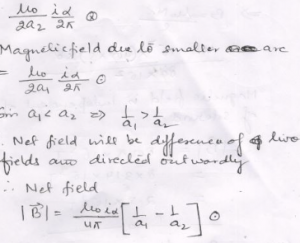 μ₀/2a₂ iα/2π ⊗
Magnetic field due to smaller arc
= μ₀/2a₁ iα/2π ⊙
a₁ < a₂ ⇒ 1/a₁ > 1/a₂
∴ Net field will be difference of two
fields and directed outwardly
∴ Net field
|B⃗| = μ₀iα/4π [1/a₁ - 1/a₂] ⊙